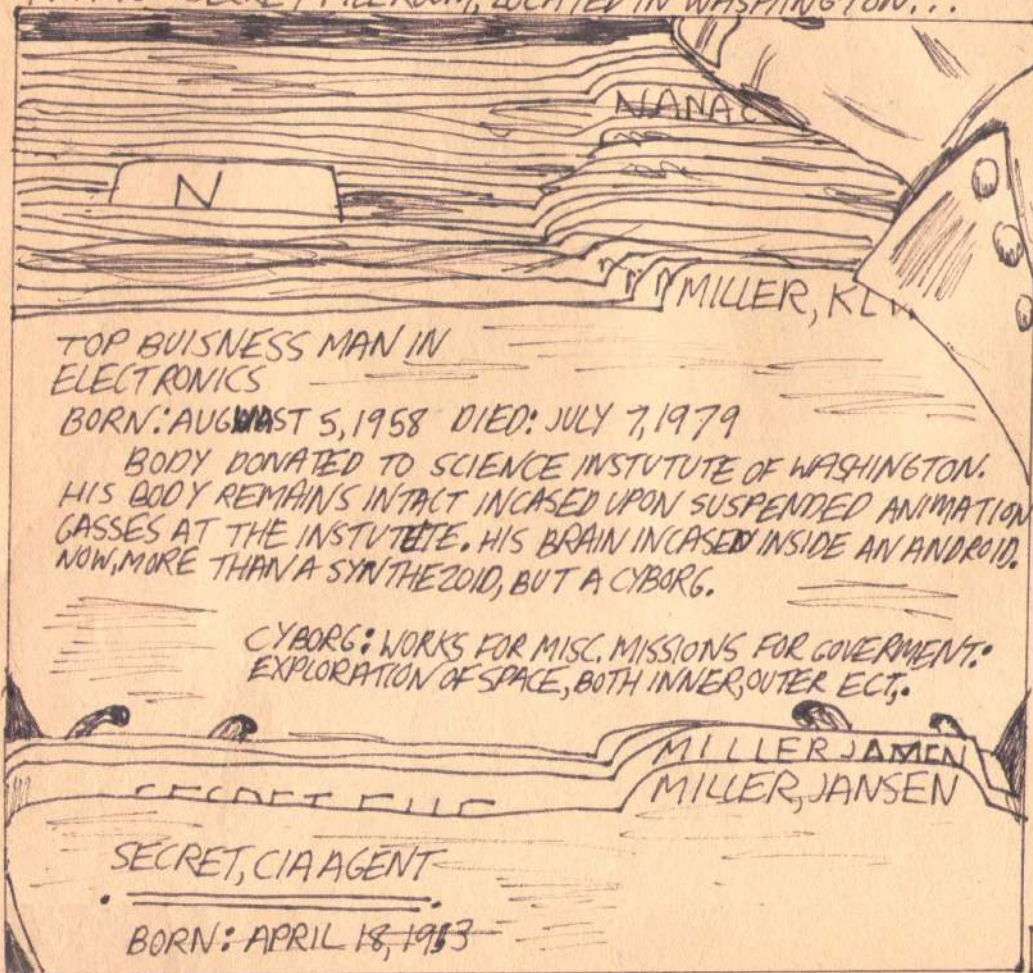 SECRET FILE ROOM, LOCATED IN WASHINGTON...
NANAC
N
MILLER, KL
TOP BUISNESS MAN IN
ELECTRONICS
BORN: AUGUAST 5, 1958 DIED: JULY 7, 1979
BODY DONATED TO SCIENCE INSTUTUTE OF WASHINGTON.
HIS BODY REMAINS INTACT INCASED UPON SUSPENDED ANIMATION
GASSES AT THE INSTUTETE. HIS BRAIN INCASED INSIDE AN ANDROID.
NOW, MORE THAN A SYNTHEZOID, BUT A CYBORG.
CYBORG: WORKS FOR MISC. MISSIONS FOR GOVERMENT.
EXPLORATION OF SPACE, BOTH INNER, OUTER ECT,.
MILLER JAMEN
MILLER, JANSEN
SECRET FILE
SECRET, CIA AGENT
BORN: APRIL 18, 1913